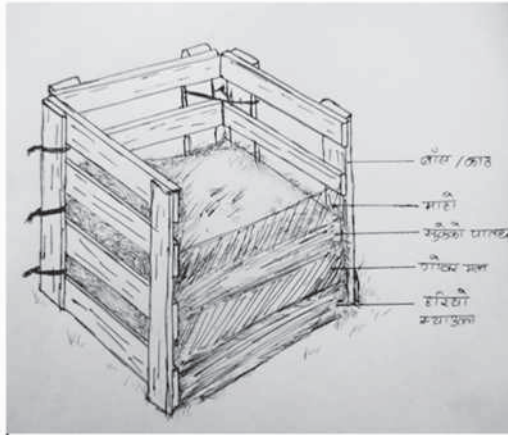 बाँस / काठ
माटो
सुकेको पात
गोबर मल
हरियो
स्याउला